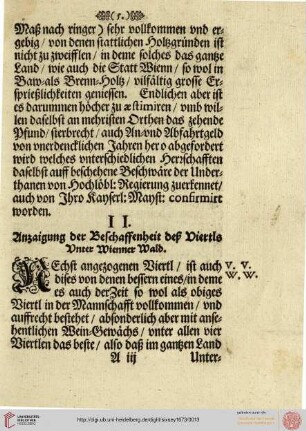 (5.)
Maß nach ringer) sehr vollkommen vnd er-
gebig/ von denen stattlichen Holtzgründen ist
nicht zu zweifflen/ in deme solches das gantze
Land/ wie auch die Statt Wienn/ so wol in
Baw-als Brenn-Holtz/ vilfältig grosse Er-
sprießlichkeiten geniessen. Endlichen aber ist
es darummen höcher zu æstimiren/ vmb wil-
len daselbst an mehristen Orthen das zehende
Pfund/ sterbrecht/ auch An/vnd Abfahrtgeld
von vnerdencklichen Jahren hero abgefordert
wird welches vnterschiedlichen Herschafften
daselbst auff beschehene Beschwäre der Under-
thanen von Hochlöbl: Regierung zuerkennet/
auch von Ihro Kayserl: Mayst: confirmirt
worden.
II.
Anzaigung der Beschaffenheit deß Viertls
Vnter Wienner Wald.
NEchst angezogenen Viertl/ ist auch V. V.
dises von denen bessern eines/ in deme W. W.
es auch der Zeit so wol als obiges
Viertl in der Mannschafft vollkommen/ vnd
auffrecht bestehet/ absonderlich aber mit anse-
hentlichen Wein-Gewächs/ vnter allen vier
Viertlen das beste/ also daß im gantzen Land
A iij Unter-
UNIVERSITÄTS-
BIBLIOTHEK
HEIDELBERG
http://digi.ub.uni-heidelberg.de/diglit/